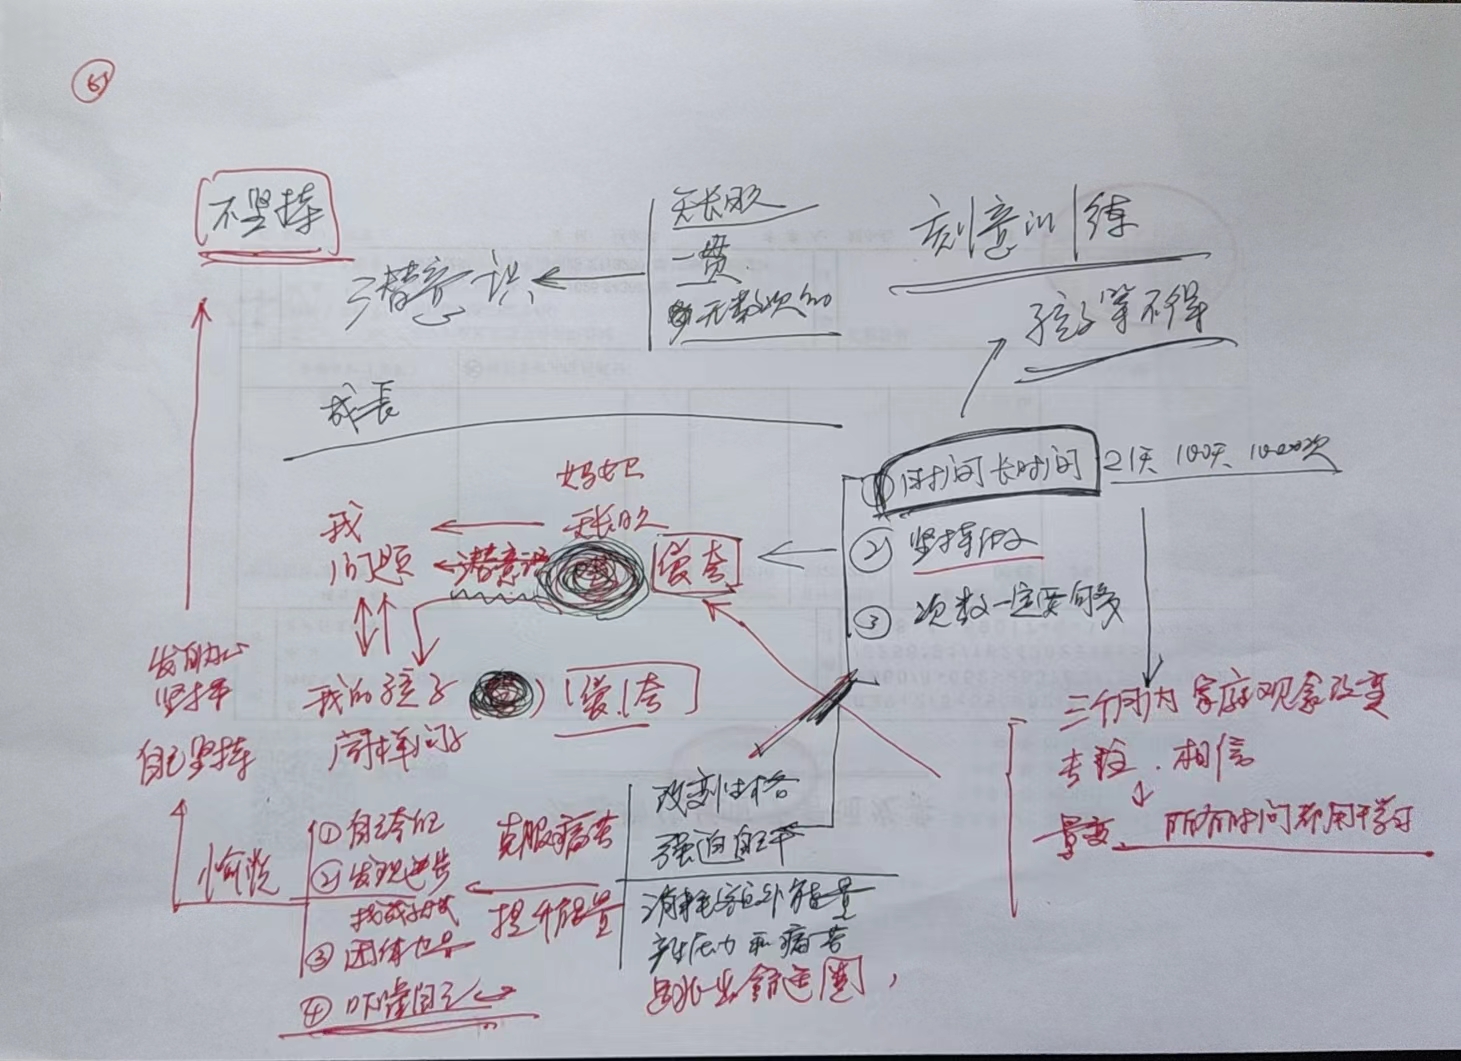 不坚持
潜意识
天长日久
一贯
无数次的
刻意训练
孩子等不得
成長
①时间长时间
21天 100天 1000次
②坚持做
③次数一定要够多
妈妈
天长日久
潜意识
我
问题
我的孩子
同样问题
三个月内 家庭观念改变
相信
量变 所有时间都用于学习
坚持
自己坚持
愉悦
①自己夸自己
②发现进步
找成就感
③团体
④吓唬自己
克服痛苦
提升能量
改变性格
强迫自己干
消耗额外能量
产生压力和痛苦
跳出舒适圈,